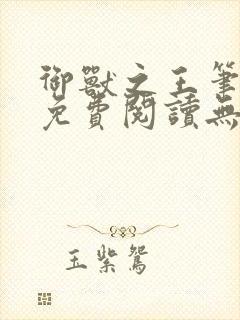 御獸之王筆
免費閱讀無
玉紫鴛